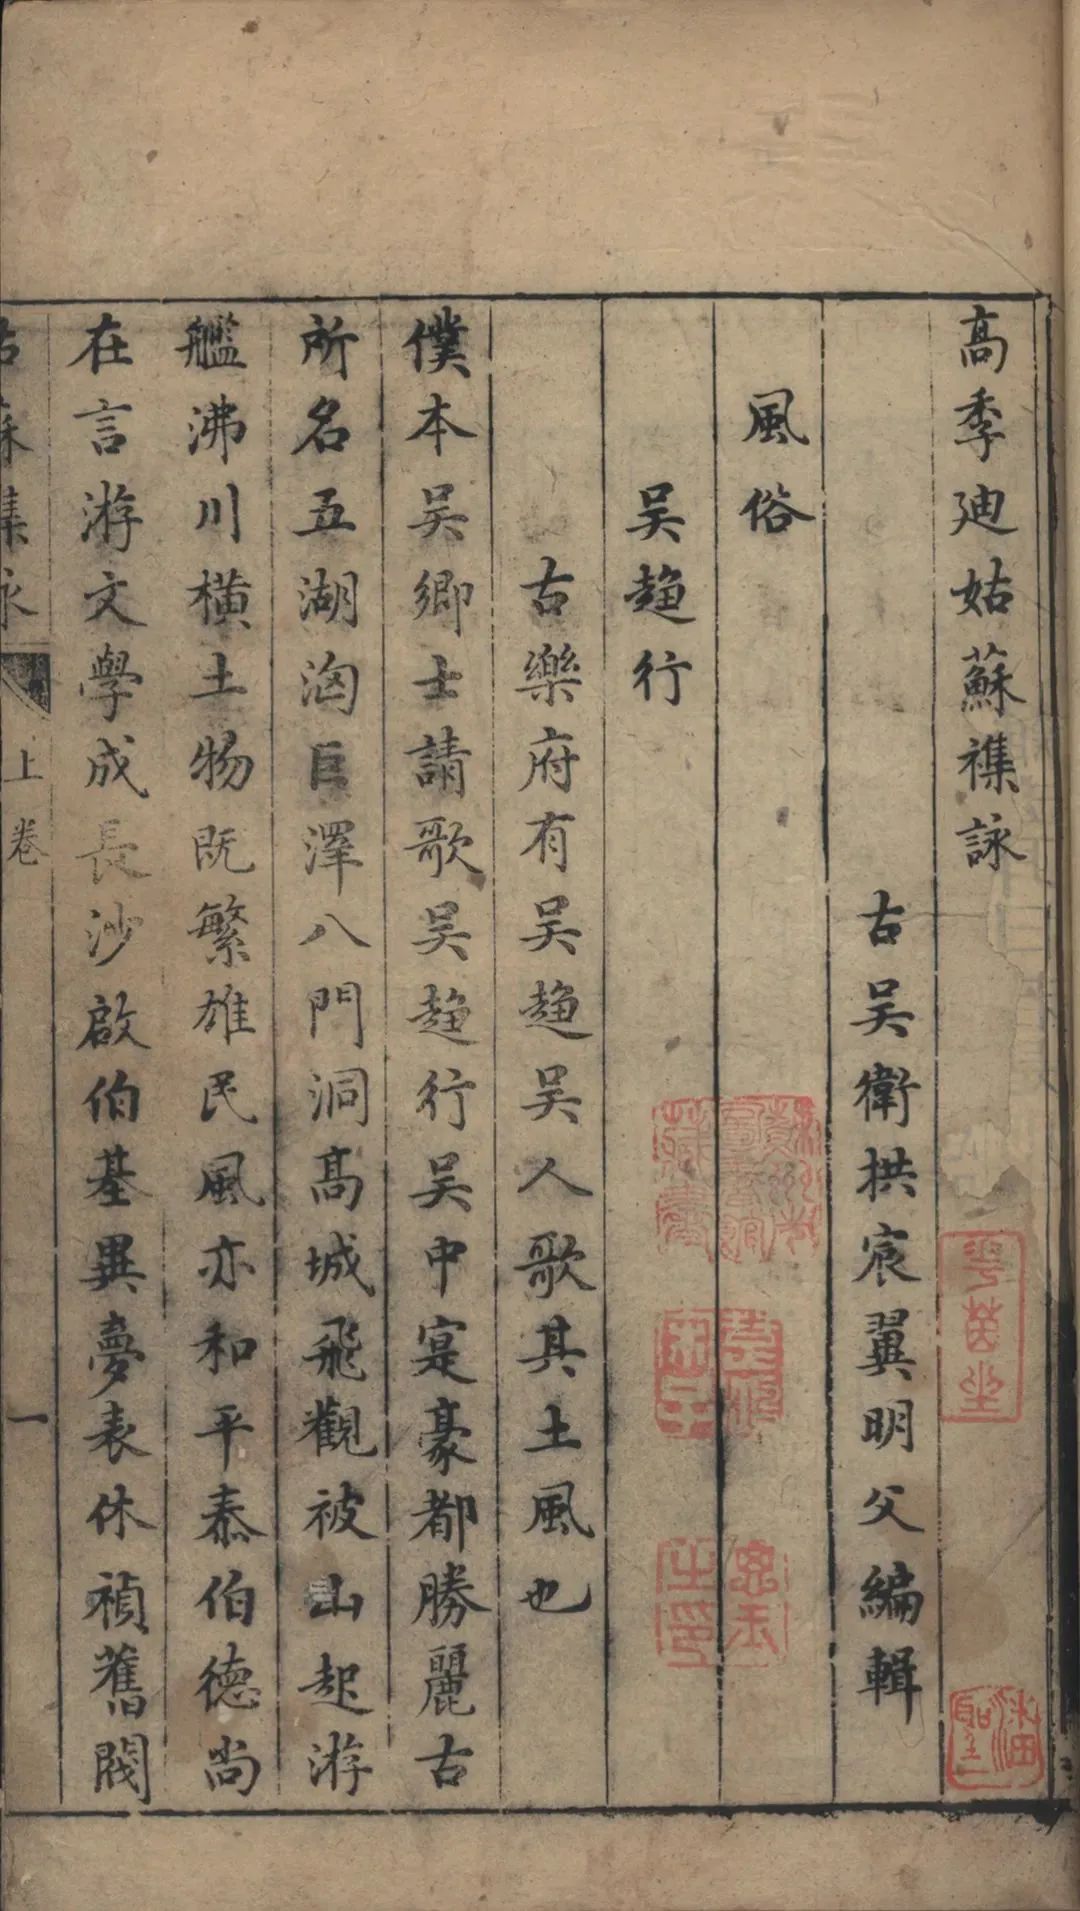 高季迪姑蘇襍詠
古吳衛拱宸翼明父編輯
風俗
吳趨行
古樂府有吳趨吳人歌其土風也
僕本吳鄉士請歌吳趨行吳中寔豪都勝麗古
所名五湖洶巨澤八門洞高城飛觀被山起游
艦沸川橫土物既繁雄民風亦和平泰伯德尚
在言游文學成長沙啟伯基異夢表休禎舊閥
上卷
一